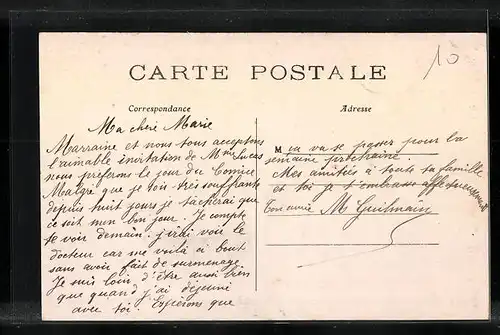 10
CARTE POSTALE
Correspondance
Adresse
Ma chère Marie
Marraine et nous tous acceptons
l'aimable invitation de Mme Lucas
nous préférons le jour du Comice
Malgré que je sois très souffrante
depuis huit jours je tâcherai que
ce soit mon bon jour. Je compte
te voir demain. j'irai voir le
docteur car me voilà à bout
sans avoir fait de surmenage.
Je suis loin d'être aussi bien
que quand j'ai déjeuné
avec toi. Espérons que
M ça va se passer pour la
semaine prochaine.
Mes amitiés à toute ta famille
et toi je t'embrasse affectueusement
Ton amie M Guilmain